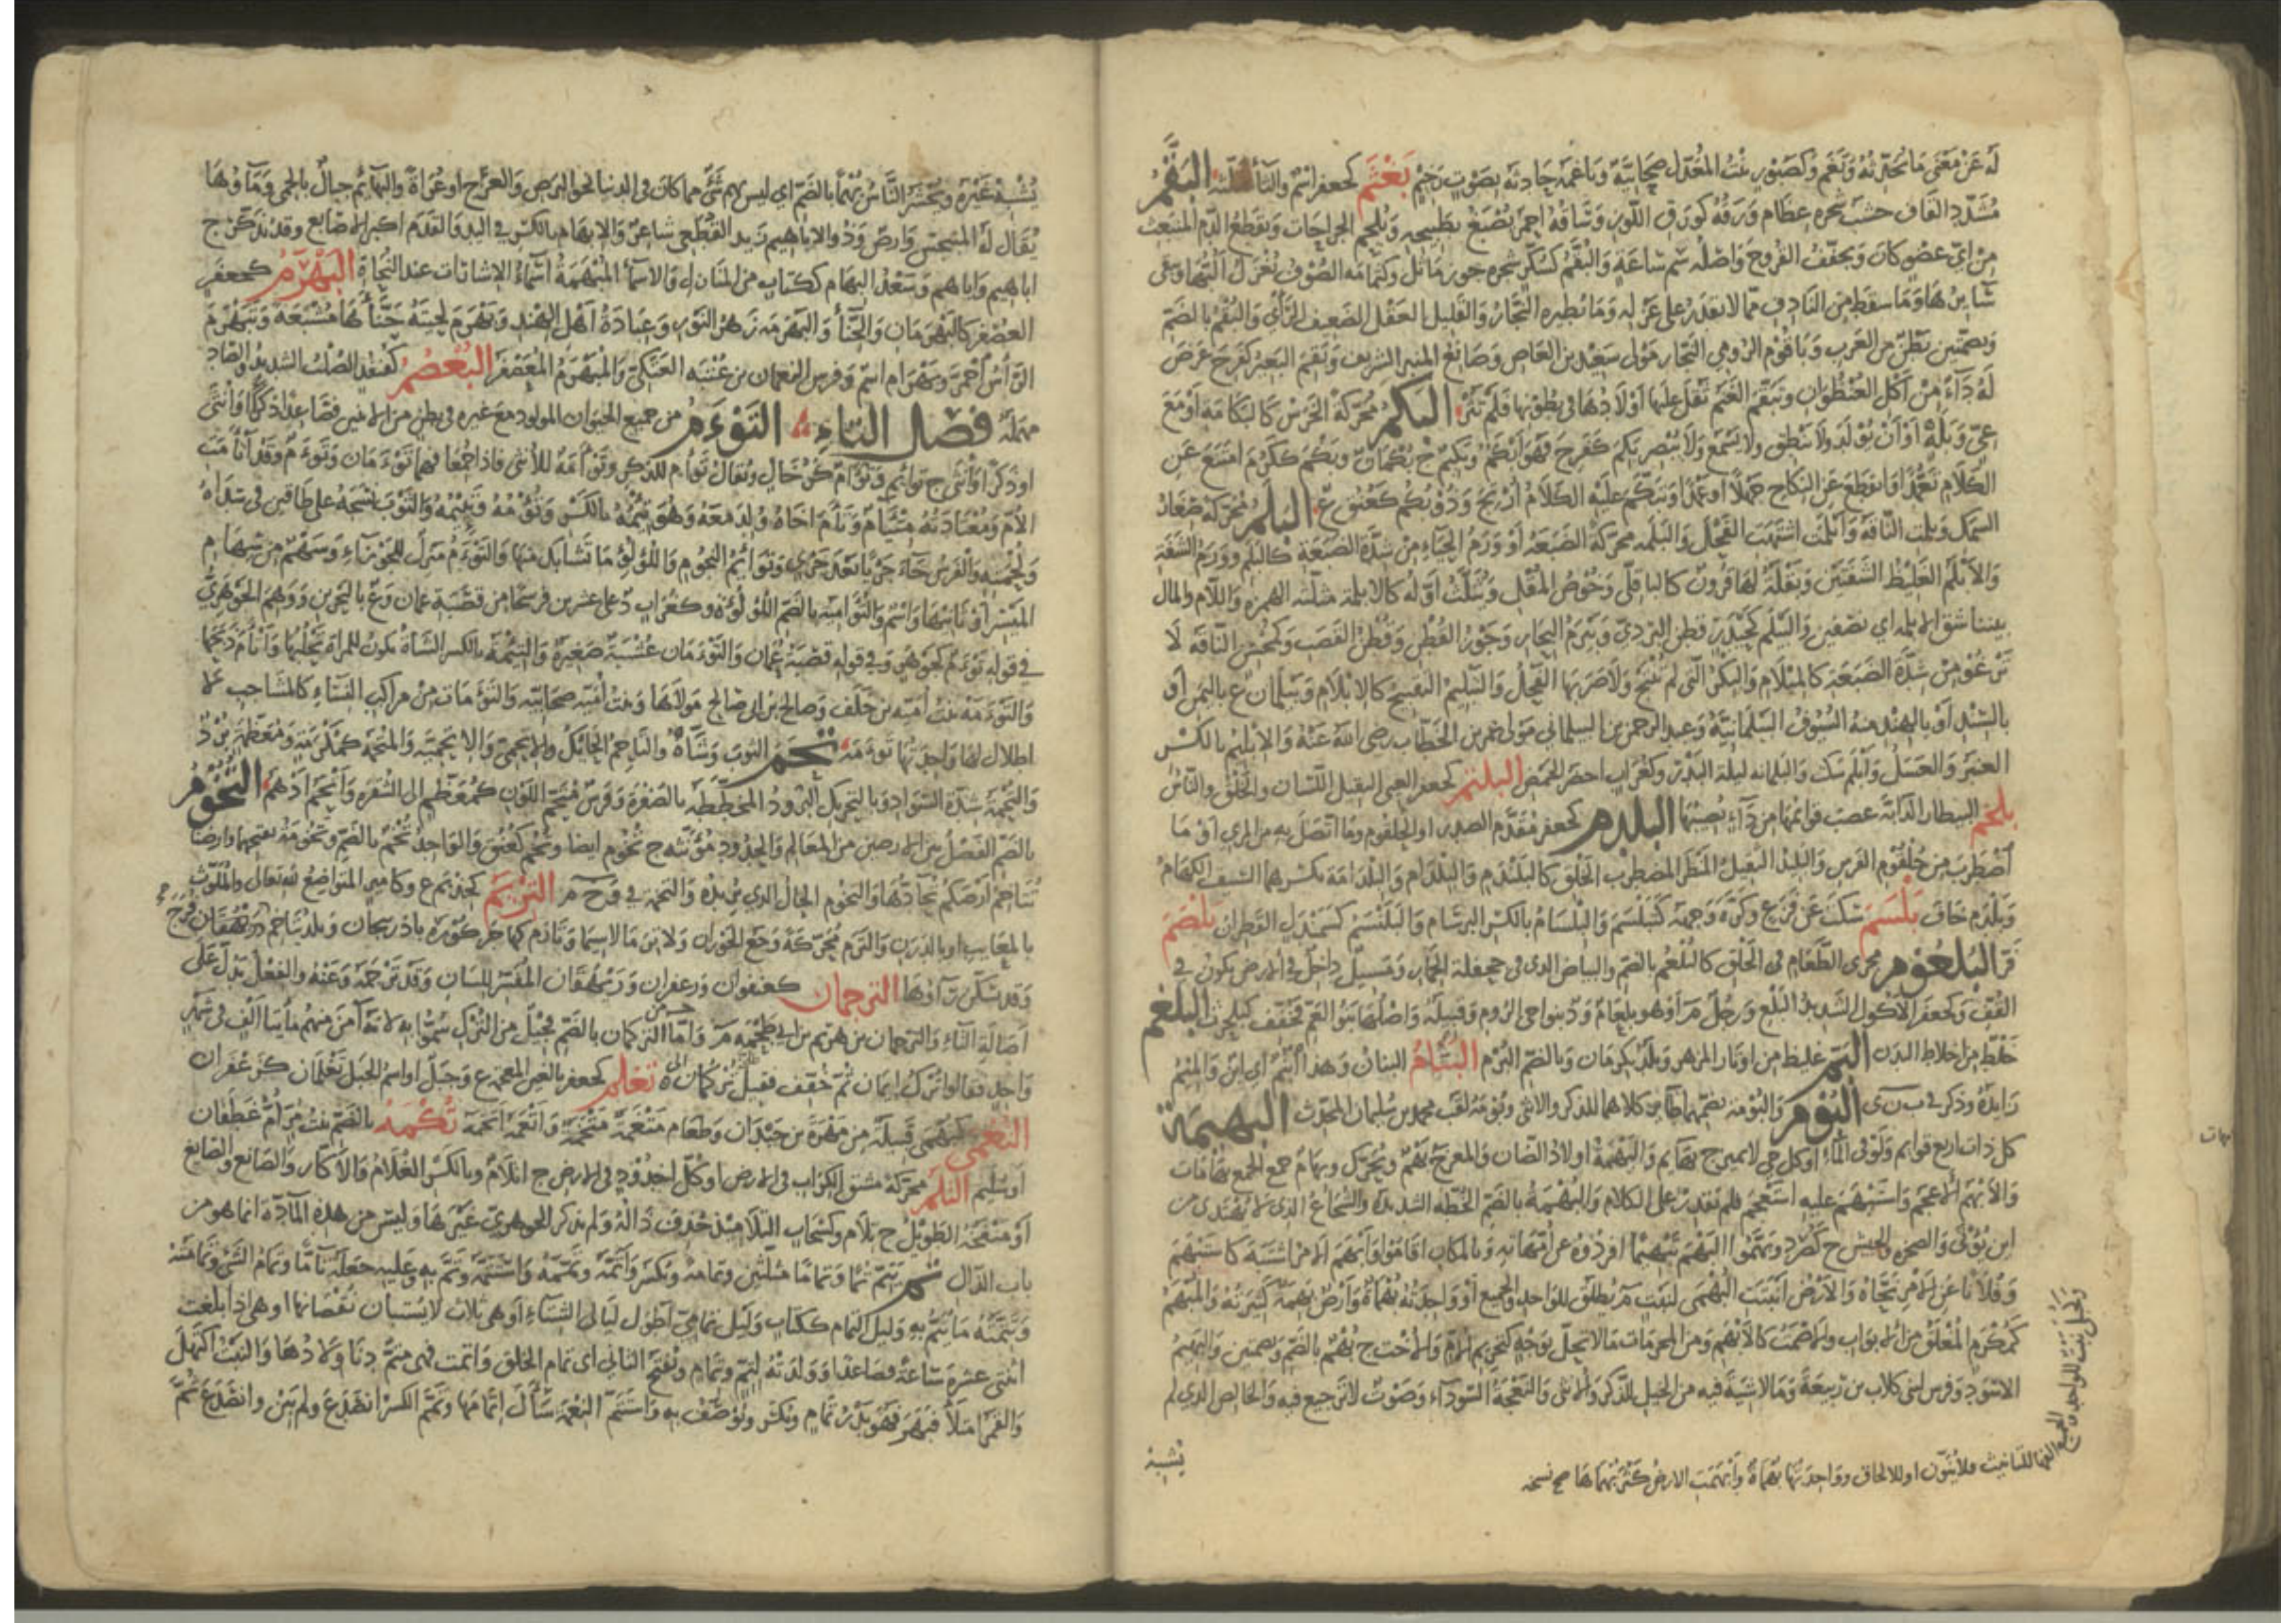 له عن معنى ما تحدثه وتبغم وكصبور بنت المعدل صحابية وباغمه حادثه بصوت رخيم بغثم كجعفر اسم والثاء مثلثة البقم
مشدد القاف خشب شجره عظام ورقه كورق اللوز وساقه احمر يصبغ بطبيخه ويلحم الجراحات ويقطع الدم المنبعث
من اي عضو كان ويجفف القروح واصله سم ساعة والبقم كسكر شجره جوز ماثل وكثمامه الصوف يغزل لبها ويبقى
سايرها وما سقط من النادف مما لا يقدر على غزله وما يطيره النجار والقليل العقل الضعيف الراي والبقم بالضم
وبضمتين بطن من العرب وباقوم الرومي النجار مولى سعيد بن العاص وصانع المنبر الشريف وبقم البعير كفرح عرض
له داء من اكل العنظوان وتبقم الغنم ثقل عليها اولادها في بطونها فلم تثر البكم محركة الخرس كالبكامة او مع
عي وبله او ان يولد ولا ينطق ولا يسمع ولا يبصر بكم كفرح فهو ابكم وبكيم ج بكمان وبكم ككرم امتنع عن
الكلام تعمدا وانقطع عن النكاح جهلا او عمدا وتبكم عليه الكلام ارتج وذو بكم كعنق ع البلم محركة صغار
السمك وبلمت الناقة وابلمت اشتهت الفحل والبلمه محركة الضبعة او ورم الحياء من شدة الضبعة كالبلم وورم الشفة
والابلم الغليظ الشفتين وبقلة لها قرون كالباقلى وخوص المقل ويثلث اوله كالابلمة مثلثة الهمزة واللام والمال
بيننا شق الابلمه اي نصفين والبيلم كحيدر قطن البردي وبيرم النجار وجوز القطن وقطن القصب وكمحسن الناقة لا
ترغو من شدة الضبعة كالمبلام والبكر التي لم تنتج ولا ضربها الفحل والتبليم التقبيح كالابلام وبيلمان ع باليمن او
بالسند او بالهند منه السيوف البيلمانية وعبد الرحمن بن البيلماني مولى عمر بن الخطاب رضي الله عنه والابليم بالكسر
العنبر والعسل وابلم سكت والبلماء ليلة البدر وكغراب اخضر الحمض البلتم كجعفر العيي الثقيل اللسان والخلق والناس
بلحم البيطار الدابة عصب قوائمها من داء يصيبها البلدم كجعفر مقدم الصدر او الحلقوم وما اتصل به من المري او ما
اضطرب من حلقوم الفرس والبليد الثقيل المنظر المضطرب الخلق كالبلندم والبلدام والبلدامة بكسرهما السيف الكهام
وبلدم خاف بلسم سكت عن فزع وكره وجهه كتبلسم والبلسام بالكسر البرسام والبلنسم كسمندل القطران بلصم
فر البلعوم مجرى الطعام في الحلق كالبلعم بالضم والبياض الذي في جحفلة الحمار ومسيل داخل في الارض يكون في
القف وكجعفر الاكول الشديد البلع ورجل م او هو بلعام ود بنواحي الروم وقبيلة واصلها بنو العم فخفف كبلحرث البلغم
خلط من اخلاط البدن البم غليظ من اوتار المزهر وبلد بكرمان وبالضم البوم البنام البنان وهذا ابنم اي ابن والميم
زايدة وذكر في ب ن ى البوم والبومة بضمهما طاير كلاهما للذكر والانثى وبومة لقب محمد بن سليمان المحدث البهيمة
كل ذات اربع قوايم ولو في الماء او كل حي لا يميز ج بهايم والبهمة اولاد الضان والمعز ج بهم ويحرك وبهام جمع الجمع بهامات
والابهم الاعجم واستبهم عليه استعجم فلم يقدر على الكلام والبهمة بالضم الخطة الشديدة والشجاع الذي لا يهتدى من
اين يؤتى والصخرة والجيش ج كصرد وبهموا البهم تبهيما افردوه عن امهاته وبالمكان اقاموا وابهم الامر اشتبه كاستبهم
وفلانا عن الامر نحاه والارض انبتت البهمى لنبت م يطلق للواحد والجميع او واحدته بهماة وارض بهمة كثيرته والمبهم
كمكرم المغلق من الابواب والاصمت كالابهم ومن المحرمات ما لا يحل بوجه كتحريم الام والاخت ج بهم بالضم وبضمتين والبهيم
الاسود وفرس لبني كلاب بن ربيعة وما لا شية فيه من الخيل للذكر والانثى والنعجة السوداء وصوت لا ترجيع فيه والخالص الذي لم
الفها للتانيث فلا ينون او للالحاق وواحدتها بهماة وابهمت الارض كثر بهماها صح نسخه
يشبه
يشبه غيره ويحشر الناس بهما بالضم اي ليس بهم شيء مما كان في الدنيا نحو البرص والعرج او عراة والبهائم جبال بالحمى وماؤها
يقال له المنبجس وارض وذو الاباهيم زيد القطعي شاعر والابهام بالكسر في اليد والقدم اكبر الاصابع وقد تذكر ج
اباهيم واباهم وسعد البهام ككتاب من المنازل والاسماء المبهمة اسماء الاشارات عند النحاة البهرم كجعفر
العصفر كالبهرمان والحناء والبهرمه زهر النور وعبادة اهل الهند وبهرم لحيته حناها مشبعة وتبهرم
الراس احمر وبهرام اسم وفرس النعمان بن عتبه العتكي والمبهرم المعصفر البعصم كقنفذ الصلب الشديد والصاد
مهملة فصل التاء التوءم من جميع الحيوان المولود مع غيره في بطن من الاثنين فصاعدا ذكرا او انثى
او ذكرا وانثى ج توائم وتؤام كرخال ويقال توأم للذكر وتوأمة للانثى فاذا جمعا فهما توءمان وتوءم وقد اتأمت
الام ومعتادته متئام وتاءم اخاه ولد معه وهو تئمه بالكسر وتؤمه وتئيمه والثوب نسجه على طاقين في سداه
ولحمته والفرس جاء جريا بعد جري وتوائم النجوم واللؤلؤ ما تشابك منها والتوءم منزل للجوزاء وسهم من سهام
الميسر او ثانيها واسم والتؤامية بالضم اللؤلؤة وكغراب د على عشرين فرسخا من قصبة عمان وع بالبحرين ووهم الجوهري
في قوله توءم كجوهر وفي قوله قصبة عمان والتوءمان عشبة صغيرة والتيمة بالكسر الشاة تكون للمراة تحلبها واتأم ذبحها
والتوءمة بنت امية بن خلف وصالح بن ابي صالح مولاها وبنت امية صحابية والتوءمات من مراكب النساء كالمشاجب لا
اظلال لها واحدتها توءمة تحم الثوب وشاه والتاحم الحائك والاتحمي والاتحمية والمتحمة كمكرمة ومعظمة برد
والتحمة شدة السواد وبالتحريك البرود المخططة بالصفرة وفرس متحم اللون كمعظم الى الشقرة واتحم ادهم التخوم
بالضم الفصل بين الارضين من المعالم والحدود مؤنثه ج تخوم ايضا وتخم كعنق والواحد تخم بالضم وتخومة بفتحهما وارضنا
تتاخم ارضكم تحادها والتخوم الحال الذي تريده والتخمة في و خ م التريم كحذيم ع وكامير المتواضع لله تعالى والملوث
بالمعايب او بالدرن والترم محركة وجع الخوران ولا ترما لا سيما وتارم كهاجر كورة باذربيجان وبلد يتاخم
وقد تسكن راؤها الترجمان كعنفوان وزعفران وريهقان المفسر للسان وقد ترجمه وعنه والفعل يدل على
اصالة التاء والترجمان بن هريم بن ابي طخمه م واما التركمان بالضم فجيل من الترك سموا به لانه امن منهم مائتا الف في شهر
واحد فقالوا ترك ايمان ثم خفف فقيل تركمان تغلم كجعفر بالغين المعجمه ع وجبل او اسم الجبل تغلمان كزعفران
التغمى كبهمى قبيلة من مهرة بن حيدان وطعام متغمة متخمة واتغمه اتخمه تكمة بالضم بنت مر ام غطفان
او سليم التلم محركة مشق الكراب في الارض او كل اخدود في الارض ج اتلام وبالكسر الغلام والاكار والصائغ
او منفخه الطويل ج تلام وكسحاب التلاميذ حذف ذاله ولم يذكر الجوهري غيرها وليس من هذه المادة انما هو من
باب الذال تم يتم تما وتماما مثلثين وتمامة ويكسر واتمه وتممه واستتمه وتم به وعليه جعله تاما وتمام الشيء وتمامته
وتتمته ما يتم به وليل التمام ككتاب وليل تمامي اطول ليالي الشتاء او هي ثلاث لا يستبان نقصانها او هي اذا بلغت
اثنتي عشرة ساعة فصاعدا وولدته لتم وتمام ويفتح الثاني اي تمام الخلق واتمت فهي متم دنا ولادها والنبت اكتهل
والقمر امتلأ فبهر فهو بدر تمام ويكسر ويوصف به واستتم النعمة سأل اتمامها وتمم الكسر انصدع ولم يبن او انصدع ثم